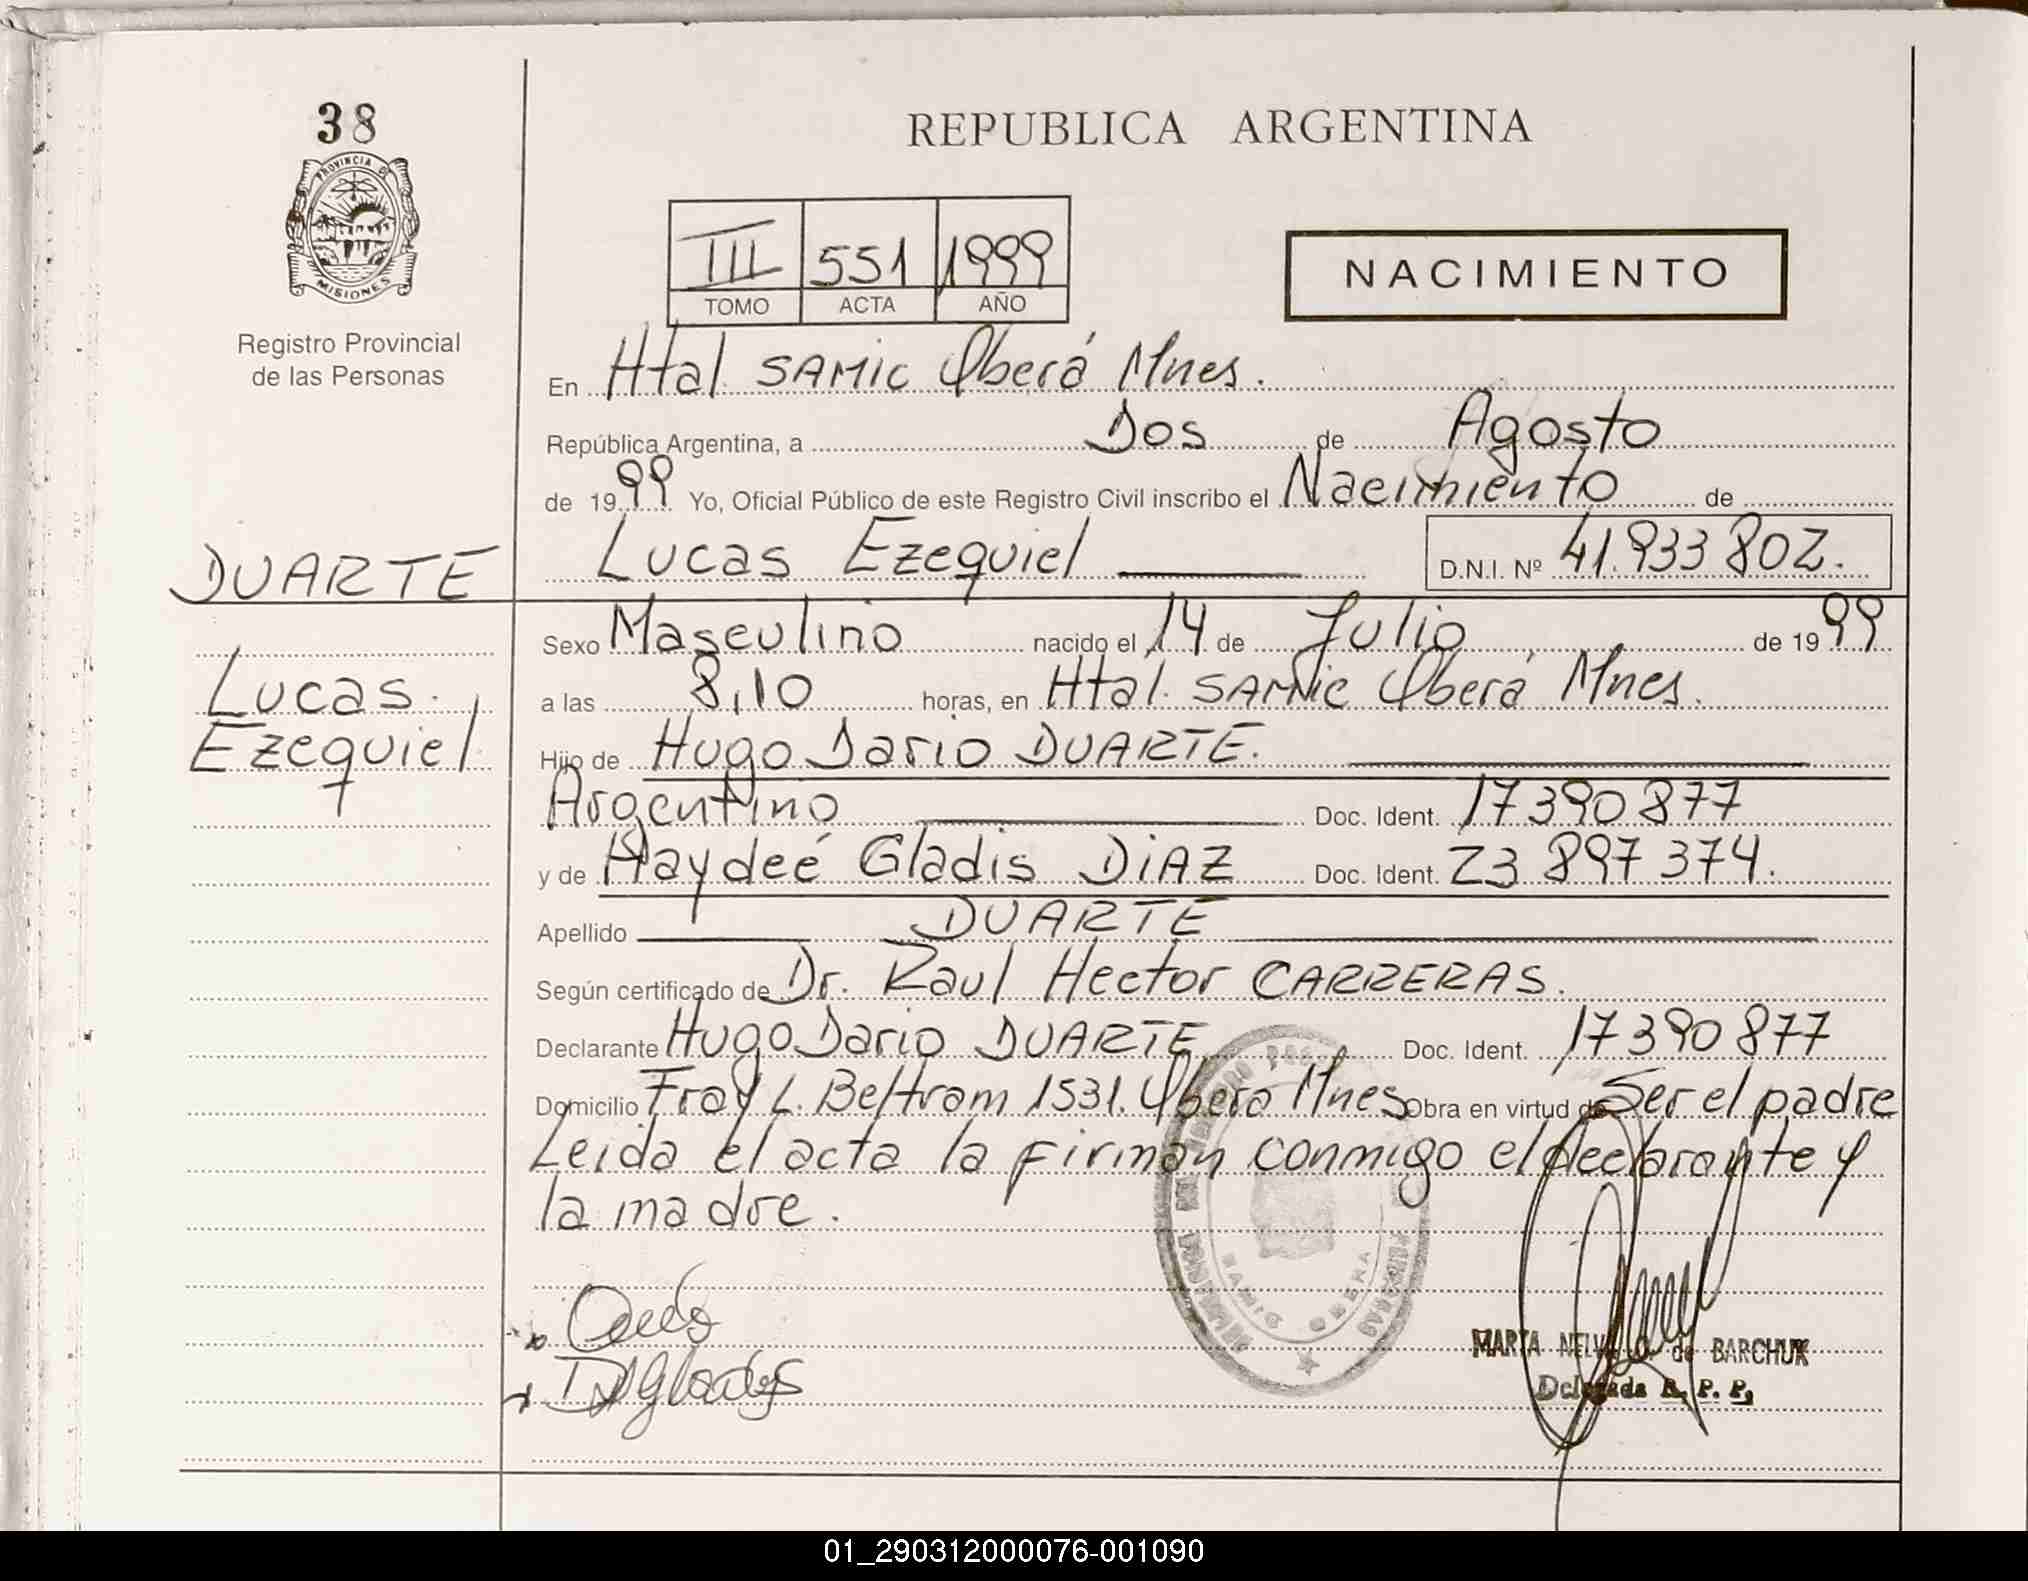 38
PROVINCIA DE
MISIONES
Registro Provincial
de las Personas
REPUBLICA ARGENTINA
III 551 1999
TOMO ACTA AÑO
NACIMIENTO
En Htal SAMIC Oberá Mnes.
República Argentina, a Dos de Agosto
de 1999 Yo, Oficial Público de este Registro Civil inscribo el Nacimiento de
DUARTE
Lucas Ezequiel D.N.I. Nº 41.933 802.
Sexo Masculino nacido el 14 de Julio de 1999
Lucas
Ezequiel
a las 8,10 horas, en Htal. SAMIC Oberá Mnes.
Hijo de Hugo Dario DUARTE.
Argentino Doc. Ident. 17390877
y de Haydeé Gladis DIAZ Doc. Ident. 23 897 374.
Apellido DUARTE
Según certificado de Dr. Raul Hector CARRERAS.
Declarante Hugo Dario DUARTE Doc. Ident. 17390877
Domicilio Fray L. Beltram 1531. Oberá Mnes Obra en virtud de Ser el padre
Leida el acta la firman conmigo el declarante y
la madre.
SAMIC OBERA
D H Gladys
MARTA NELV O. de BARCHUK
Delegada R. P. P.
01_290312000076-001090